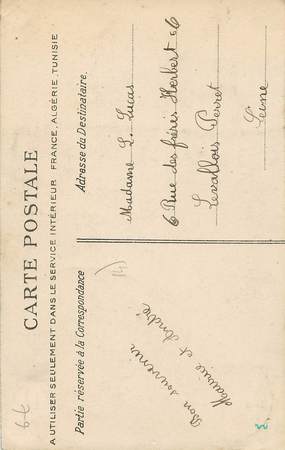 CARTE POSTALE
A UTILISER SEULEMENT DANS LE SERVICE INTÉRIEUR FRANCE, ALGÉRIE, TUNISIE
Partie réservée à la Correspondance
Adresse du Destinataire.
Bon souvenir
Maurice et André
Madame L. Lucas
6 Rue des frères Herbert 6
Levallois Perret
Seine